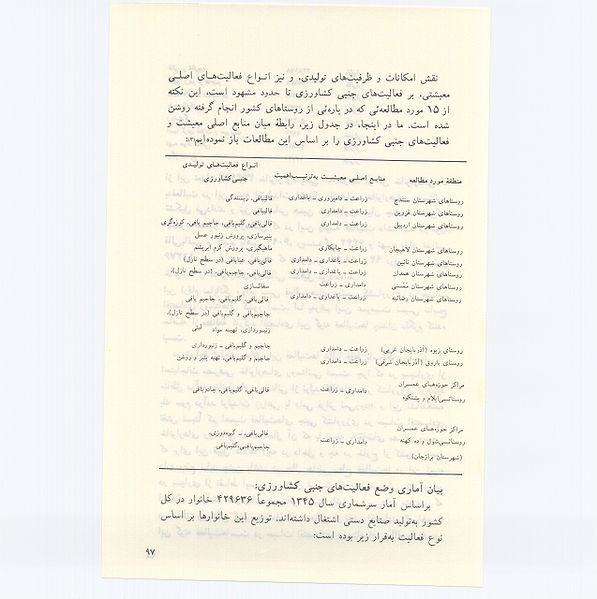 نقش امکانات و ظرفیت‌های تولیدی، و نیز انواع فعالیت‌های اصلی
معیشتی، بر فعالیت‌های جنبی کشاورزی تا حدود مشهود است، این نکته
از ۱۵ مورد مطالعه‌ئی که در پاره‌ئی از روستاهای کشور انجام گرفته روشن
شده است. ما در اینجا، در جدول زیر، رابطهٔ میان منابع اصلی معیشت و
فعالیت‌های جنبی کشاورزی را بر اساس این مطالعات باز نموده‌ایم
انواع فعالیت‌های تولیدی
منطقهٔ مورد مطالعه منابع اصلی معیشت به‌ترتیب‌اهمیت جنبی‌کشاورزی
روستاهای شهرستان سنندج زراعت ـ دامپروری ـ باغداری قالیبافی، ریسندگی
روستاهای شهرستان قزوین زراعت ـ دامداری قالیبافی
روستاهای شهرستان اردبیل زراعت ـ دامداری قالی‌بافی، گلیم‌بافی، جاجیم بافی، کوزه‌گری
پنیرسازی، پرورش زنبور عسل
روستاهای شهرستان لاهیجان زراعت ـ چایکاری ماهیگیری، پرورش کرم ابریشم
روستاهای شهرستان نائین زراعت ـ باغداری ـ دامداری قالی‌بافی، عبابافی (در سطح نازل)
روستاهای شهرستان همدان زراعت ـ باغداری ـ دامداری قالی‌بافی، جاجیم‌بافی، (در سطح نازل)،
روستاهای شهرستان ممسنی دامداری ـ زراعت سفالسازی
روستاهای شهرستان رضائیه زراعت ـ باغداری ـ دامداری قالی‌بافی، گلیم‌بافی، جاجیم بافی
جاجیم‌بافی و گلیم‌بافی (در سطح نازل)،
زنبورداری، تهیه مواد لبنی
روستای زیوه (آذربایجان غربی) زراعت ـ دامداری جاجیم و گلیم‌بافی ـ زنبورداری
روستای باروق (آذربایجان شرقی) زراعت ـ دامداری جاجیم و گلیم‌بافی، تهیه پنیر و روغن
مراکز حوزه‌های عمران
روستائی‌ایلام و پشتکوه دامداری ـ زراعت قالی‌بافی، گلیم‌بافی، چادربافی
مراکز حوزه‌های عمران قالی‌بافی، ـ گیوه‌دوزی،
روستائی‌شول و ده کهنه دامداری ـ زراعت جاجیم‌بافی، گلیم‌بافی
(شهرستان برازجان)
بیان آماری وضع فعالیت‌های جنبی کشاورزی:
براساس آمار سرشماری سال ۱۳۴۵ مجموعاً ۴۲۹۶۳۶ خانوار در کل
کشور به‌تولید صنایع دستی اشتغال داشته‌اند، توزیع این خانوارها بر اساس
نوع فعالیت به‌قرار زیر بوده است:
۹۷